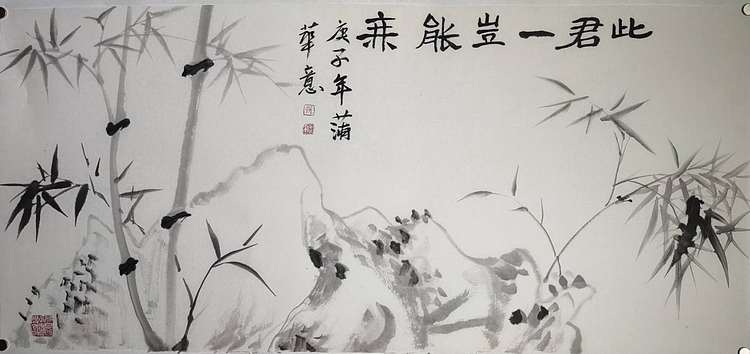 此君一豈能
庚子年蒲
華意